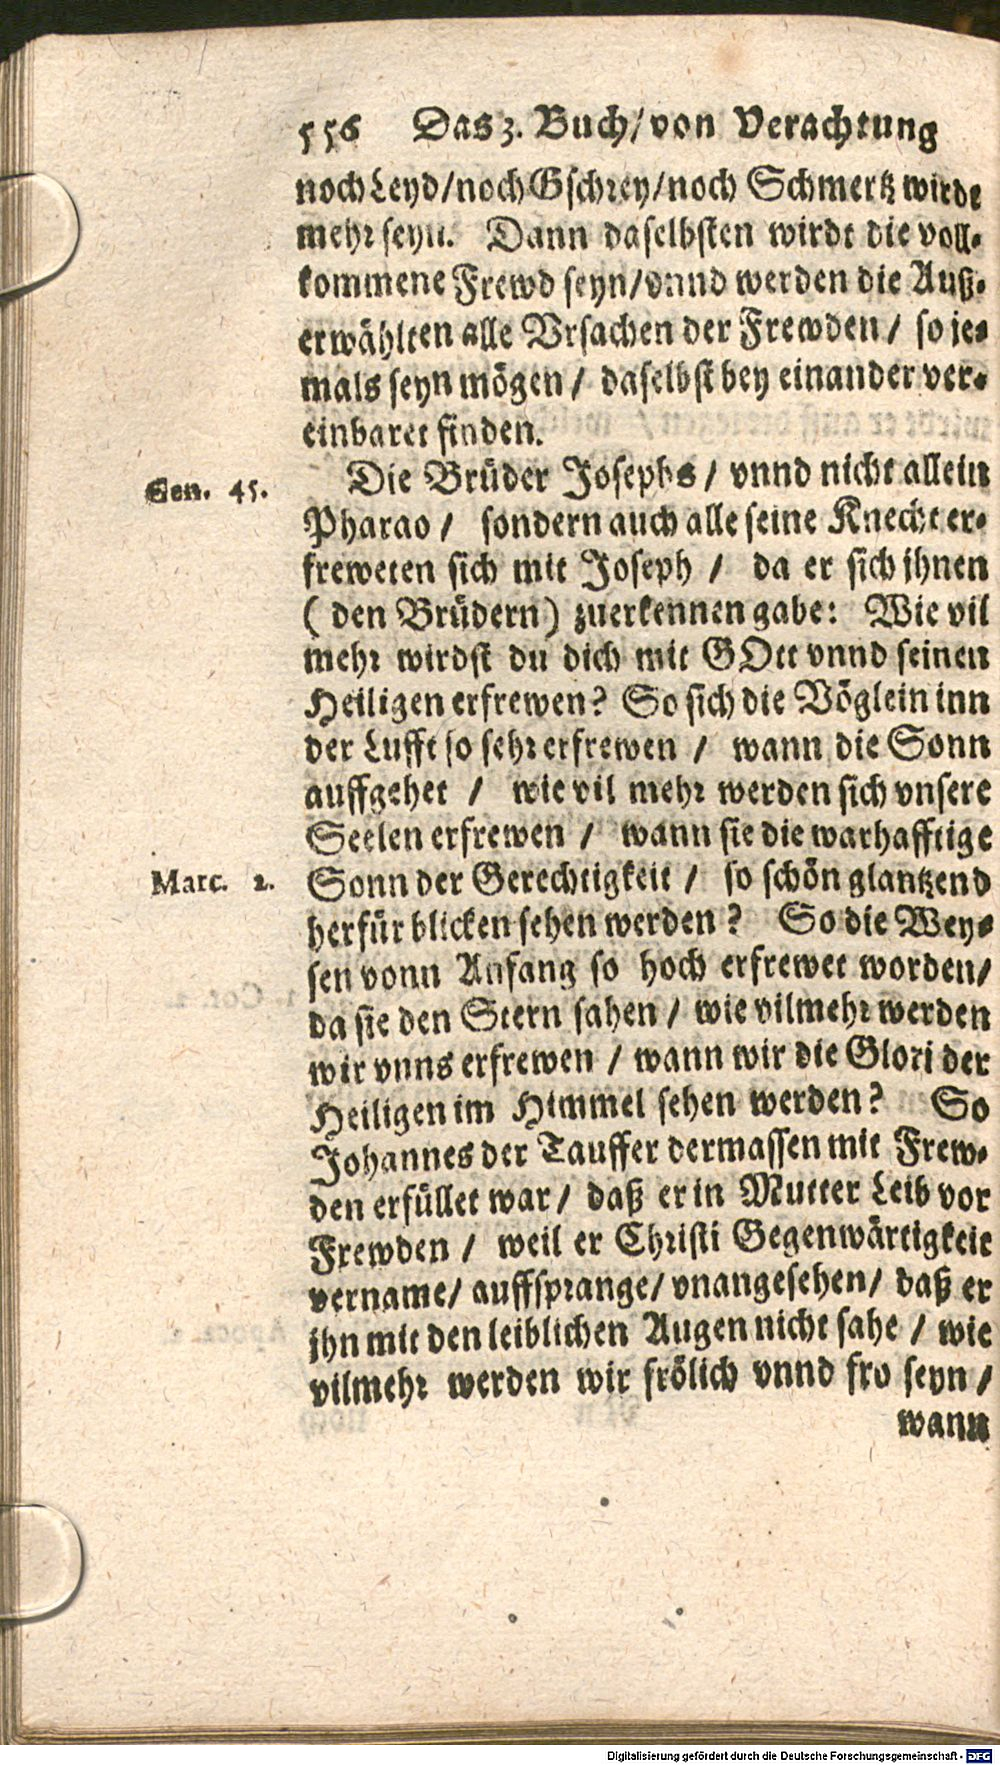 556 Das 3. Buch/von Verachtung
noch Leyd/noch Gschrey/noch Schmertz wirdt
mehr seyn. Dann daselbsten wirdt die voll-
kommene Frewd seyn/vnnd werden die Auß-
erwählten alle Vrsachen der Frewden/ so je-
mals seyn mögen/ daselbst bey einander ver-
einbaret finden.
Die Brüder Josephs/ vnnd nicht allein
Gen. 45.
Pharao/ sondern auch alle seine Knecht er-
freweten sich mit Joseph/ da er sich jhnen
(den Brüdern) zuerkennen gabe: Wie vil
mehr wirdst du dich mit GOtt vnnd seinen
Heiligen erfrewen? So sich die Vöglein inn
der Lufft so sehr erfrewen/ wann die Sonn
auffgehet/ wie vil mehr werden sich vnsere
Seelen erfrewen/ wann sie die warhafftige
Marc. 2.
Sonn der Gerechtigkeit/ so schön glantzend
herfür blicken sehen werden? So die Wey-
sen vonn Anfang so hoch erfrewet worden/
da sie den Stern sahen/ wie vilmehr werden
wir vnns erfrewen/ wann wir die Glori der
Heiligen im Himmel sehen werden? So
Johannes der Tauffer dermassen mit Frew-
den erfüllet war/ daß er in Mutter Leib vor
Frewden/ weil er Christi Gegenwärtigkeit
vername/ auffsprange/ vnangesehen/ daß er
jhn mit den leiblichen Augen nicht sahe/ wie
vilmehr werden wir frölich vnnd fro seyn/
wann
Digitalisierung gefördert durch die Deutsche Forschungsgemeinschaft - DFG